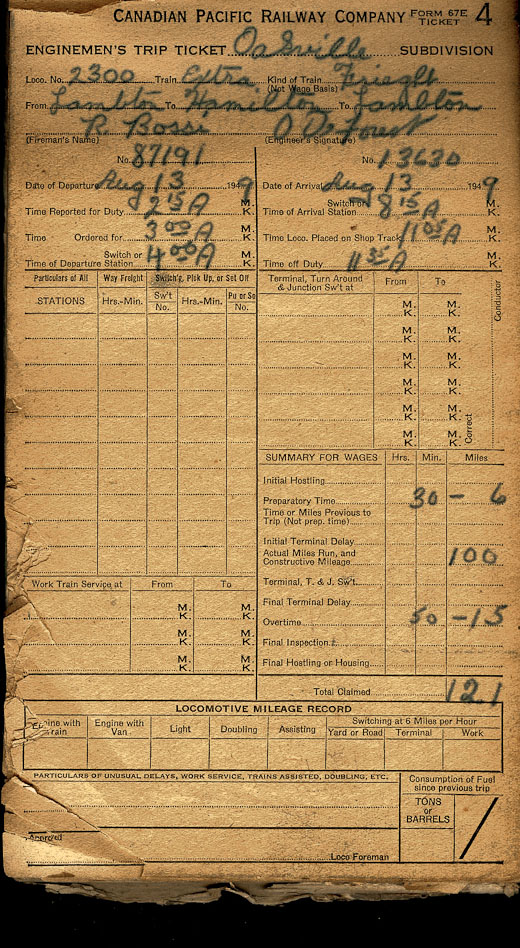 CANADIAN PACIFIC RAILWAY COMPANY FORM 67E TICKET 4
ENGINEMEN'S TRIP TICKET Oakville SUBDIVISION
Loco. No. 2300 Train Extra Kind of Train (Not Wage Basis) Frieght
From Lambton To Hamilton To Lambton
R Rossi
(Fireman's Name) (Engineer's Signature)
No. 87191 No. 13630
Date of Departure Aug 13 1949 Date of Arrival Aug 13 1949
Time Reported for Duty 2 15 A M. K. Switch or Time of Arrival Station 8 15 A M. K.
Time Ordered for 3 00 A M. K. Time Loco. Placed on Shop Track 11 05 A M. K.
Switch or Time of Departure Station 4 00 A M. K. Time off Duty 11 35 A M. K.
Particulars of All Way Freight Switch'g, Pick Up, or Set Off
STATIONS Hrs.-Min. Sw't No. Hrs.-Min. Pu or So No.
Terminal, Turn Around & Junction Sw't at From To Conductor
M. K. M. K.
M. K. M. K.
M. K. M. K.
M. K. M. K.
M. K. M. K.
M. K. M. K. Correct
SUMMARY FOR WAGES Hrs. Min. Miles
Initial Hostling
Preparatory Time 30 - 6
Time or Miles Previous to Trip (Not prep. time)
Initial Terminal Delay
Actual Miles Run, and Constructive Mileage 100
Terminal, T. & J. Sw't.
Final Terminal Delay
Overtime 50 - 15
Final Inspection
Final Hostling or Housing
Total Claimed 121
Work Train Service at From To
M. K. M. K.
M. K. M. K.
M. K. M. K.
LOCOMOTIVE MILEAGE RECORD
Engine with Train Engine with Van Light Doubling Assisting Switching at 6 Miles per Hour
Yard or Road Terminal Work
PARTICULARS OF UNUSUAL DELAYS, WORK SERVICE, TRAINS ASSISTED, DOUBLING, ETC.
Consumption of Fuel since previous trip
TONS or BARRELS /
Approved
Loco Foreman